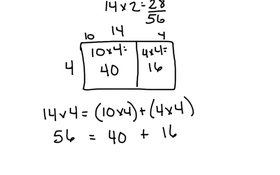 14×2=28
56
14
10 4
10×4= 4×4=
4 40 16
14×4=(10×4)+(4×4)
56 = 40 + 16